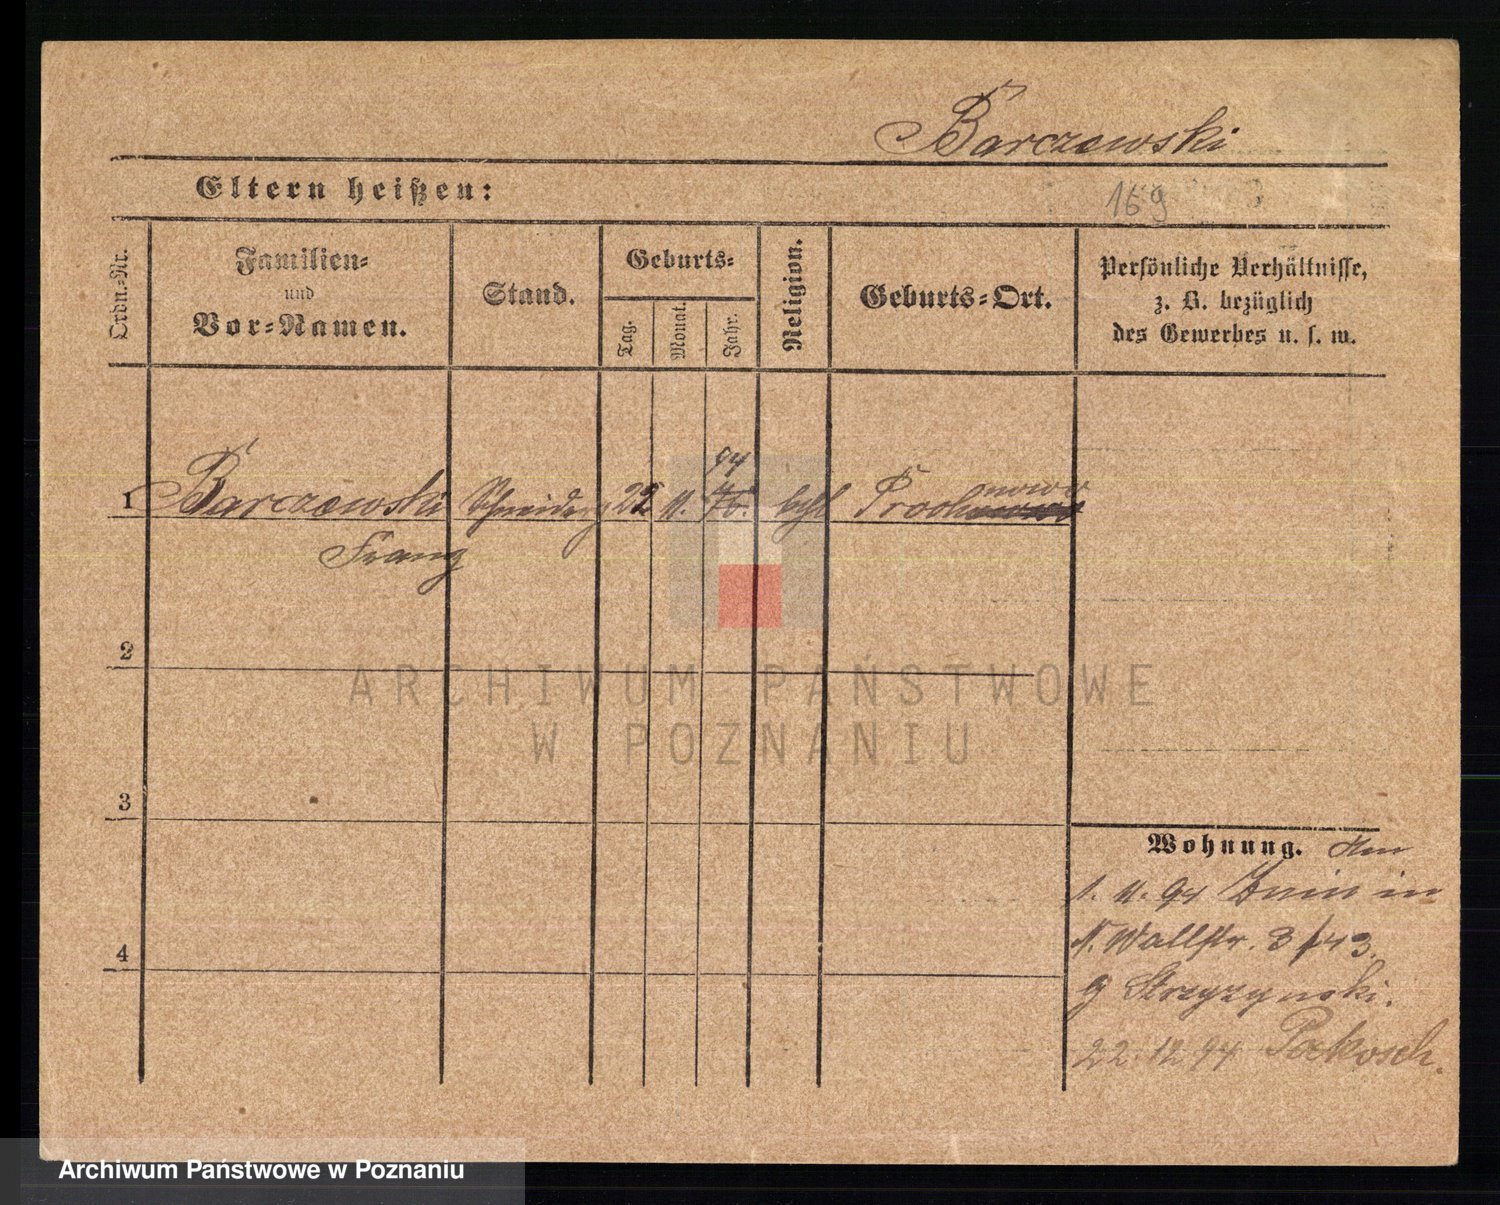 Barczewski
Eltern heißen:
169
Ordn.-Nr.
Familien-
und
Vor-Namen.
Stand.
Geburts-
Tag.
Monat.
Jahr.
Religion.
Geburts-Ort.
Persönliche Verhältnisse,
z. B. bezüglich
des Gewerbes u. s. w.
94
1 Barczewski Schneiderg 22 11. 76. kath Prochnowo
Franz
2
3
4
Wohnung.
1. 11. 94 Znin in
N. Wallstr. 3/43.
Strzyzynski.
22. 12. 94 Pakosch.
ARCHIWUM PAŃSTWOWE
W POZNANIU
Archiwum Państwowe w Poznaniu